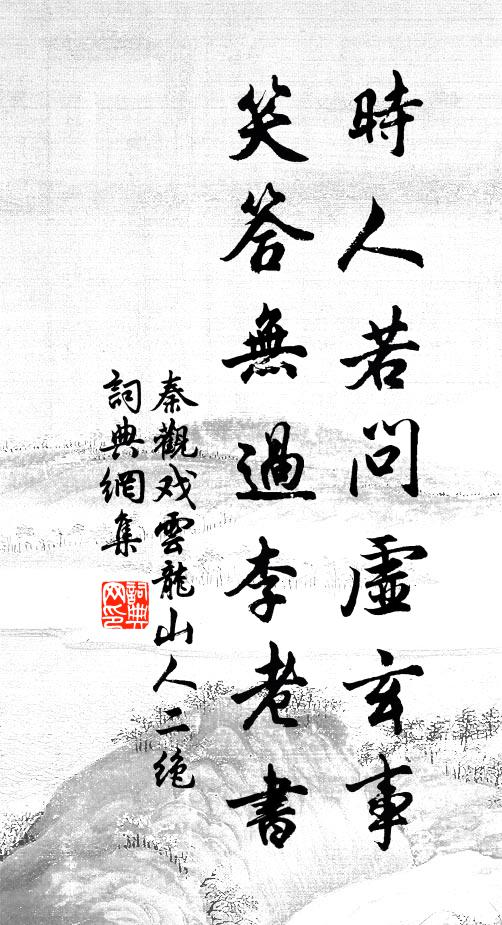 時人若問虛玄事
笑答無過李老書
秦觀戏雲龍山人二绝
詞典網集
詞典
网印